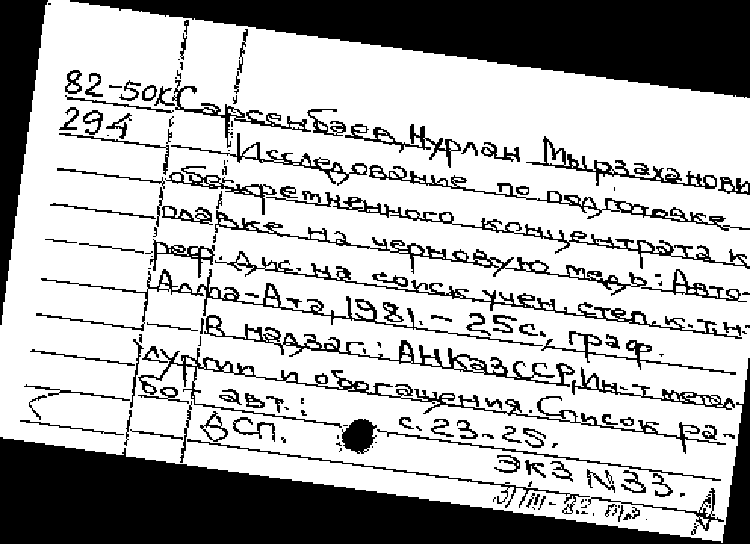 82-50к Сарсенбаев, Нурлан Мырзаханови
294
Исследование по подготовке
обескремненного концентрата к
плавке на черновую медь: Авто-
реф. дис. на соиск. учен. степ. к.т.н.-
Алма-Ата, 1981. - 25с., граф.
В надзаг.: АН КазССР, Ин-т метал-
лургии и обогащения. Список ра-
бот авт.: с. 23-25.
ВСП.
ЭКЗ N33.